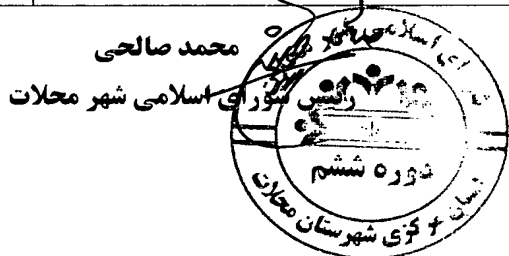 محمد صالحی
رئیس شورای اسلامی شهر محلات
دوره ششم
مرکزی شهرستان محلات